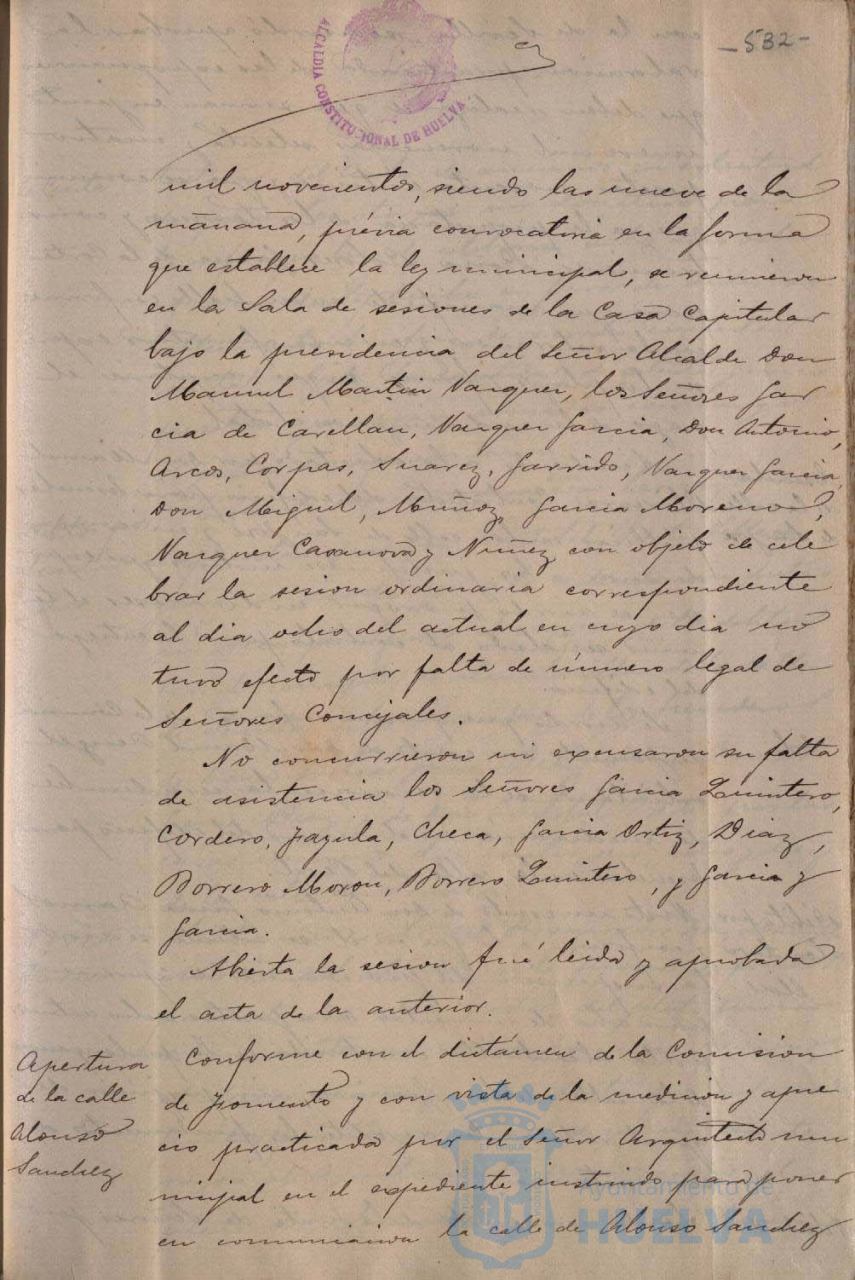 -532-
ALCALDIA CONSTITUCIONAL DE HUELVA
mil novecientos, siendo las nueve de la
mañana, prévia convocatoria en la forma
que establece la ley municipal, se reunieron
en la Sala de sesiones de la Casa Capitular
bajo la presidencia del Señor Alcalde Don
Manuel Martin Vazquez, los Señores Gar
cia de Carellan, Vazquez Garcia, Don Antonio,
Arcos, Corpas, Suarez, Garrido, Vazquez Garcia,
Don Miguel, Muñoz, Garcia Moreno,
Vazquez Casanova y Nuñez con objeto de cele
brar la sesion ordinaria correspondiente
al dia ocho del actual en cuyo dia no
tuvo efecto por falta de número legal de
Señores Concejales.
No concurrieron ni excusaron su falta
de asistencia los Señores Garcia Quintero,
Cordero, Checa, Garcia Ortiz, Diaz,
Borrero Moron, Borrero Quintero, y Garcia y
Garcia.
Abierta la sesion fué leida y aprobada
el acta de la anterior.
Apertura
de la calle
Alonso
Sanchez
Conforme con el dictámen de la Comision
de Fomento y con vista de la medicion y apre
cio practicada por el Señor Arquitecto mu
nicipal en el expediente instruido para poner
en comunicacion la calle de Alonso Sanchez
Ayuntamiento de
HUELVA